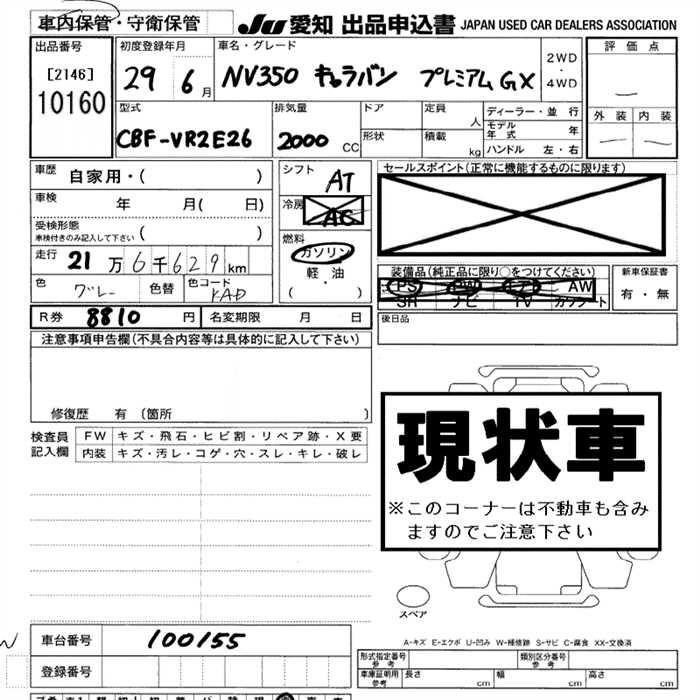 車内保管・守衛保管 JU 愛知 出品申込書 JAPAN USED CAR DEALERS ASSOCIATION
出品番号 初度登録年月 車名・グレード 2WD・4WD 評価点
[2146] 29 6月 NV350 キャラバン プレミアムGX
10160
外装 内装
型式 排気量 ドア 定員 人 ディーラー・並行
CBF-VR2E26 2000 CC 形状 積載 kg モデル年式 年
ハンドル 左・右
車歴 自家用・( ) シフト AT セールスポイント(正常に機能するものに限ります)
車検 年 月( 日) 冷房 AC
受検形態
車検付きのみ記入して下さい ( ) 燃料 ガソリン
走行 21万6千629km 軽・油 装備品(純正品に限り○をつけてください) 新車保証書
色 グレー 色替 色コード KAD ・( ) PS PW エアB AW 有・無
SR ナビ TV カワシート
R券 8810円 名変期限 月 日 後日品
注意事項申告欄(不具合内容等は具体的に記入して下さい)
修復歴 有 〔箇所 〕
検査員記入欄 FW キズ・飛石・ヒビ割・リペア跡・X要
内装 キズ・汚レ・コゲ・穴・スレ・キレ・破レ
現状車
※このコーナーは不動車も含み
ますのでご注意下さい
スペア
車台番号 100155 A-キズ E-エクボ U-凹み W-補修跡 S-サビ C-腐食 XX-交換済
登録番号 形式指定番号 参考 類別区分番号 参考
車庫証明用 参考 長さ cm 幅 cm 高さ cm